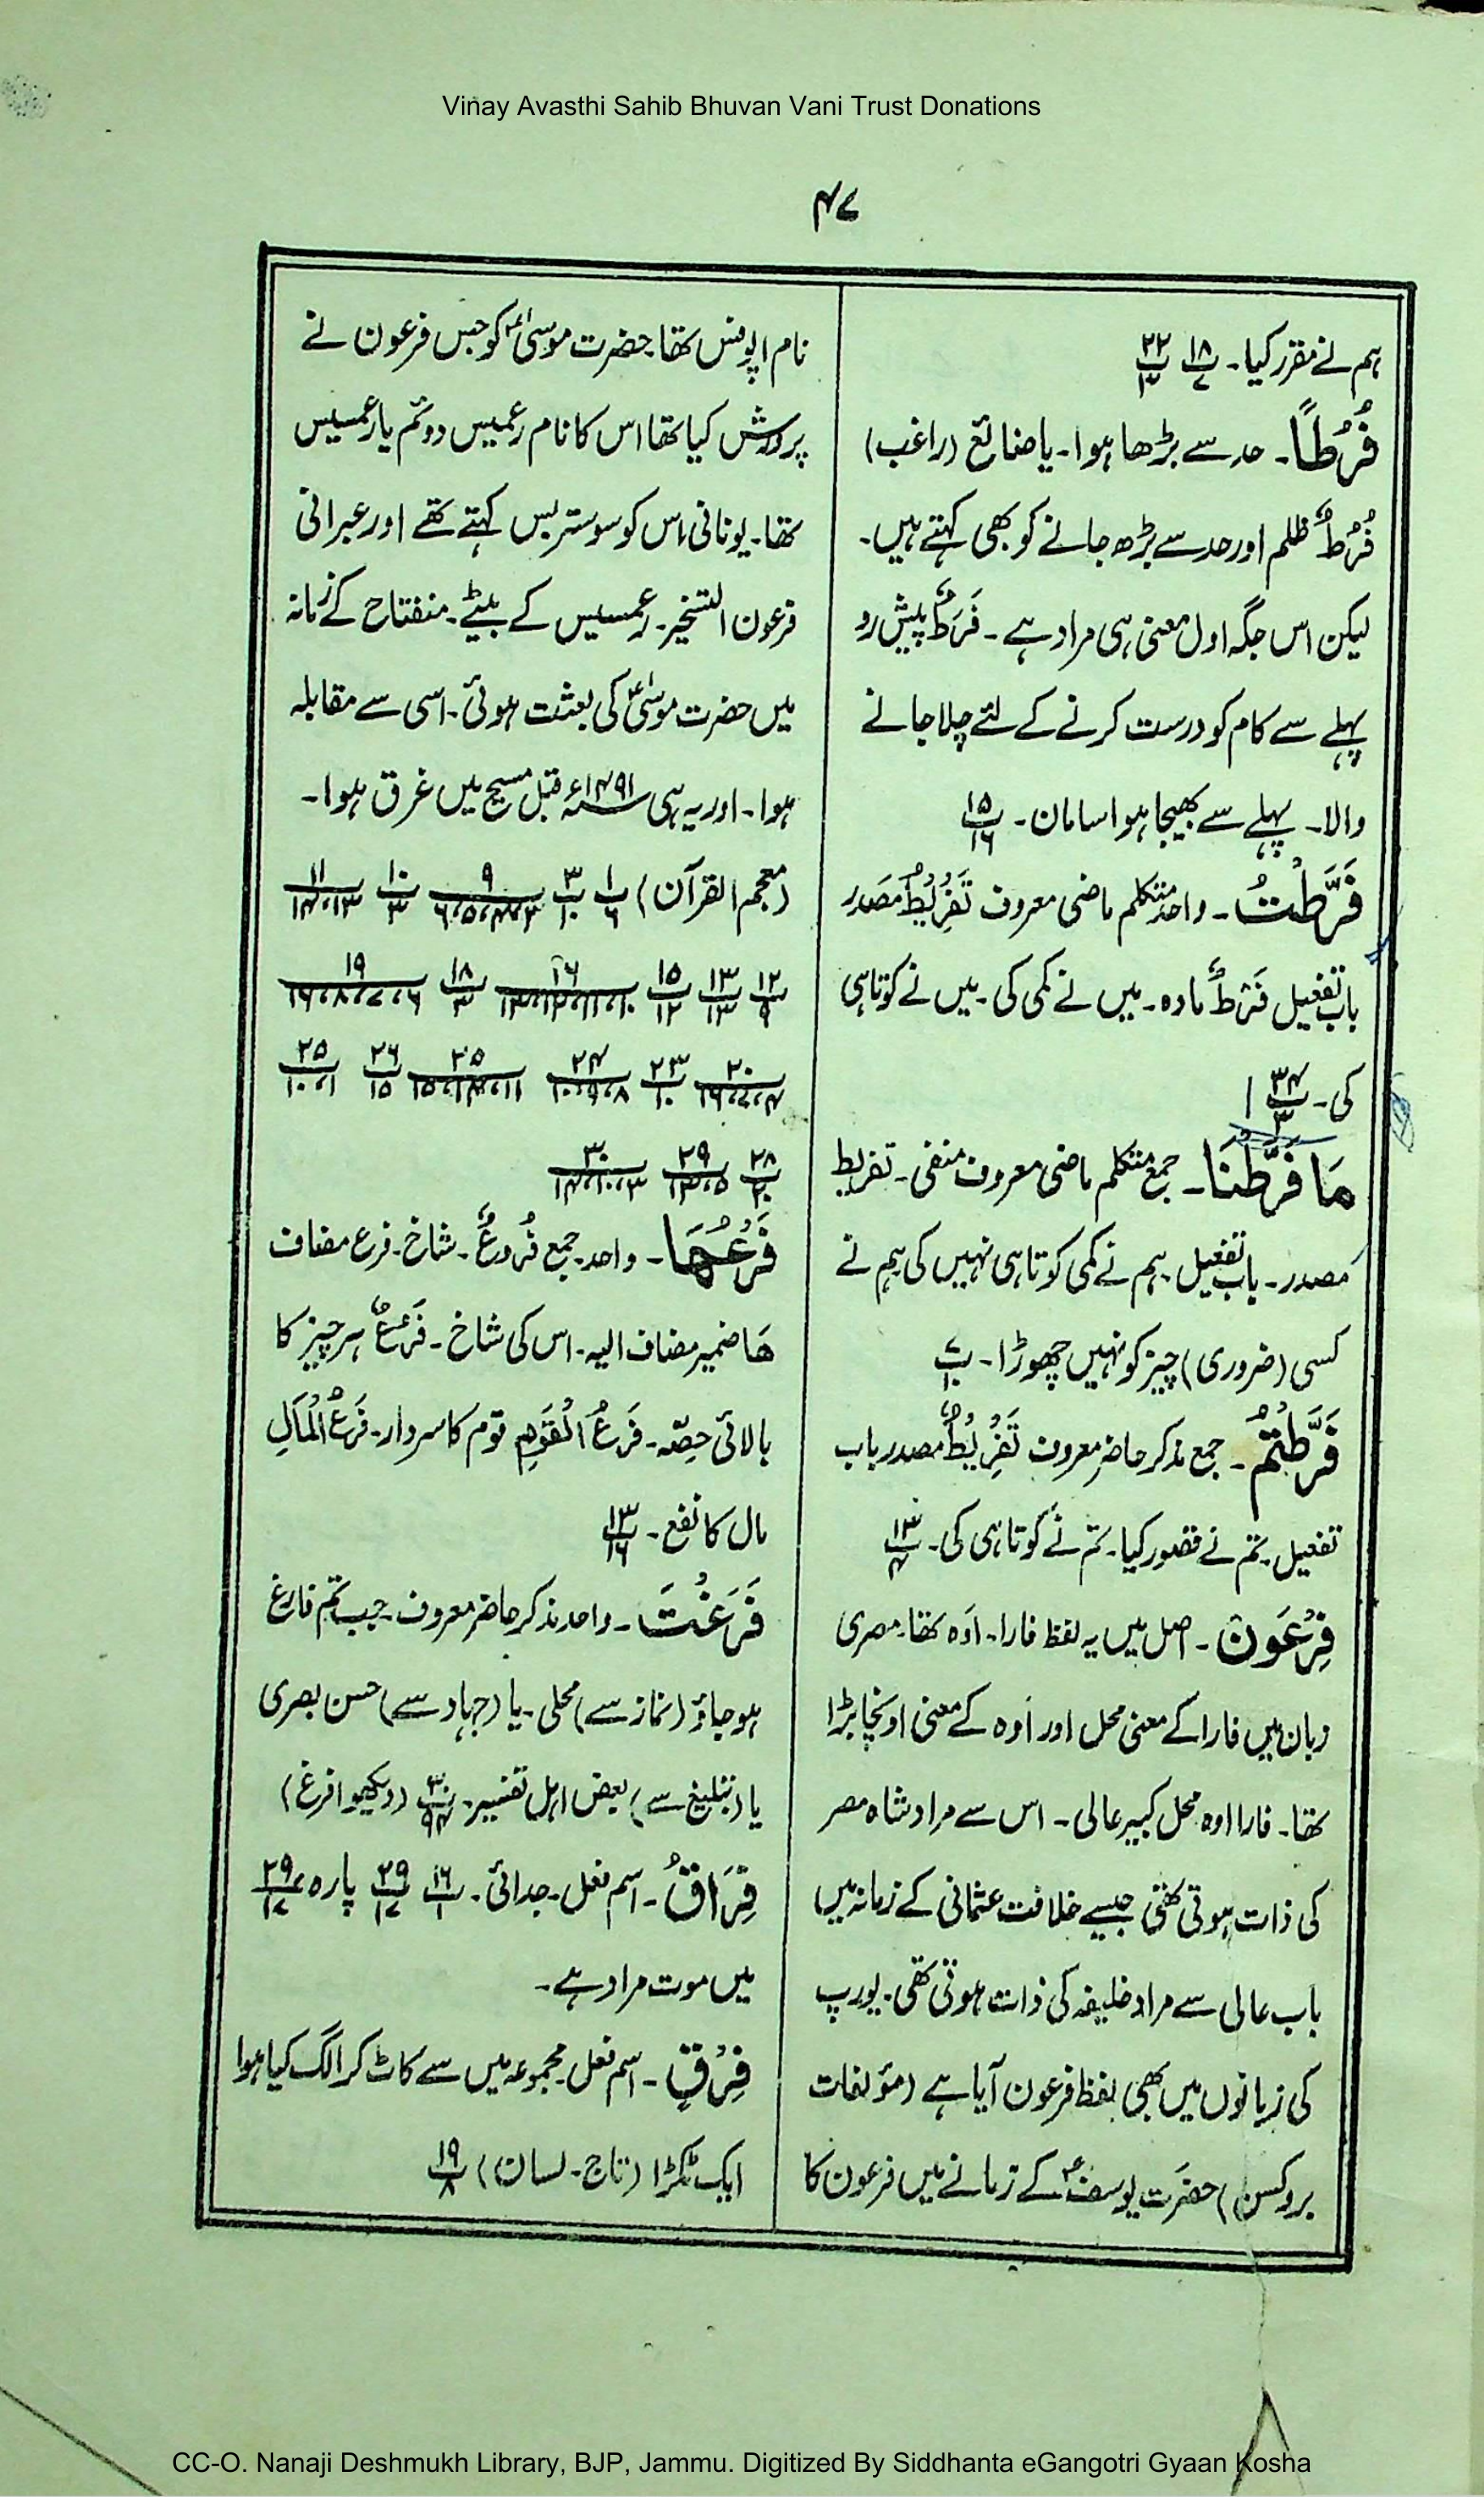 Vinay Avasthi Sahib Bhuvan Vani Trust Donations
۴۷
ہم نے مقرر کیا۔ پ۱۸/۷ پ۲۲/۳
فُرُطًا۔ حد سے بڑھا ہوا۔ یا ضائع (راغب)
فُرُطٌ ظلم اور حد سے بڑھ جانے کو بھی کہتے ہیں۔
لیکن اس جگہ اول معنی ہی مراد ہے۔ فَرَطٌ پیش رو
پہلے سے کام کو درست کرنے کے لئے چلا جانے
والا۔ پہلے سے بھیجا ہوا سامان۔ پ۱۵/۱۶
فَرَّطْتُ۔ واحد متکلم ماضی معروف تَفْرِیْطٌ مصدر
باب تفعیل فَرْطٌ مادہ۔ میں نے کمی کی۔ میں نے کوتاہی
کی۔ پ۲۴/۳
مَا فَرَّطْنَا۔ جمع متکلم ماضی معروف منفی۔ تفریط
مصدر۔ باب تفعیل۔ ہم نے کمی کوتاہی نہیں کی ہم نے
کسی (ضروری) چیز کو نہیں چھوڑا۔ پ۷/۱۰
فَرَّطْتُمْ۔ جمع مذکر حاضر معروف تَفْرِیْطٌ مصدر باب
تفعیل۔ تم نے قصور کیا۔ تم نے کوتاہی کی۔ پ۱۳/۴
فِرْعَوْن۔ اصل میں یہ لفظ فارا۔ اَوہ تھا۔ مصری
زبان میں فارا کے معنی محل اور اَوہ کے معنی اونچا بڑا
تھا۔ فارا اوہ محل کبیر عالی۔ اس سے مراد شاہ مصر
کی ذات ہوتی تھی جیسے خلافت عثمانی کے زمانہ میں
باب عالی سے مراد خلیفہ کی ذات ہوتی تھی۔ یورپ
کی زبانوں میں بھی لفظ فرعون آیا ہے (مؤلفات
بروکسن) حضرت یوسفؑ کے زمانے میں فرعون کا
نام اپوفس تھا۔ حضرت موسیٰؑ کو جس فرعون نے
پرورش کیا تھا اس کا نام رعمیس دوئم یا رعمسیس
تھا۔ یونانی اس کو سوسترلیس کہتے تھے اور عبرانی
فرعون التسخیر۔ رعمسیس کے بیٹے۔ منفتاح کے زمانہ
میں حضرت موسیٰؑ کی بعثت ہوئی۔ اسی سے مقابلہ
ہوا۔ اور یہ ہی ۱۴۹۱ء قبل مسیح میں غرق ہوا۔
(معجم القرآن) پ۱/۶ پ۳/۱۰ پ۹/۳،۴،۵،۶ پ۱۰/۳ پ۱۱/۱۳،۱۴
پ۱۲/۹ پ۱۳/۱۳ پ۱۵/۱۲ پ۱۶/۱۰،۱۱،۱۲،۱۳ پ۱۸/۳ پ۱۹/۶،۷،۸،۱۶
پ۲۰/۴،۷،۱۶ پ۲۳/۱۰ پ۲۴/۸،۹،۱۰ پ۲۵/۱۱،۱۴،۱۵ پ۲۶/۱۵ پ۲۵/۱،۱۰
پ۲۸/۲۰ پ۲۹/۵،۱۳ پ۳۰/۳،۱۰،۱۴
فَرْعُهَا۔ واحد۔ جمع فُروعٌ۔ شاخ۔ فرع مضاف
ھَا ضمیر مضاف الیہ۔ اس کی شاخ۔ فَرْعٌ ہر چیز کا
بالائی حِصّہ۔ فَرْعُ الْقَوْمِ قوم کا سردار۔ فَرْعُ الْمَالِ
مال کا نفع۔ پ۱۳/۱۶
فَرَغْتَ۔ واحد مذکر حاضر معروف۔ جب تم فارغ
ہو جاؤ (نماز سے) محلی۔ یا (جہاد سے) حسن بصری
یا (تبلیغ سے) بعض اہل تفسیر۔ ۳۰/۹۴ (دیکھو افرغ)
فِرَاقُ۔ اسم فعل۔ جدائی۔ پ۱۶/۱ پ۲۹/۱۷ پارہ ۲۹/۱۷
میں موت مراد ہے۔
فِرْقٍ۔ اسم فعل۔ مجموعہ میں سے کاٹ کر الگ کیا ہوا
ایک ٹکڑا (تاج۔ لسان) پ۱۹/۸
CC-O. Nanaji Deshmukh Library, BJP, Jammu. Digitized By Siddhanta eGangotri Gyaan Kosha